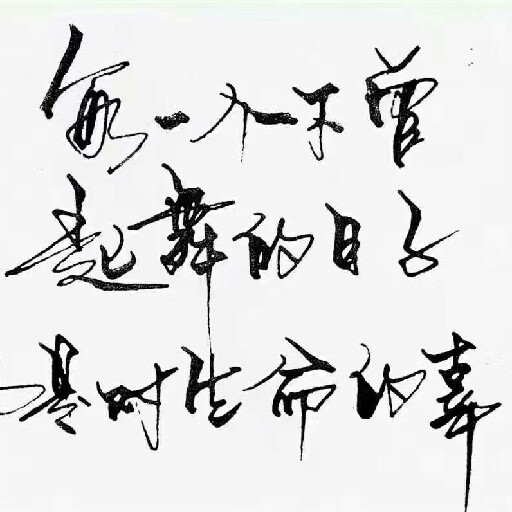 每一个不曾
起舞的日子
是对生命的辜